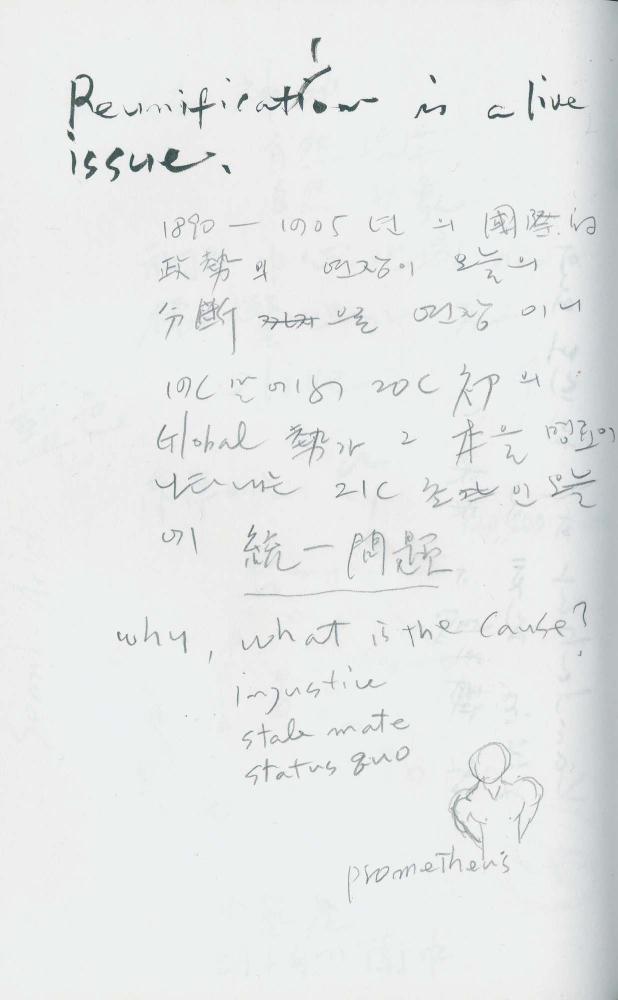 Reunification is a live
issue.
1890 – 1905 년 의 國際的
政勢의 연장이 오늘의
分斷 으로 연장 이니
19C 말에서 20C 初의
Global 勢가 그 本을
나타내는 21C 인 오늘
에 統一問題
why, what is the cause?
injustice
stale mate
status quo
prometheus